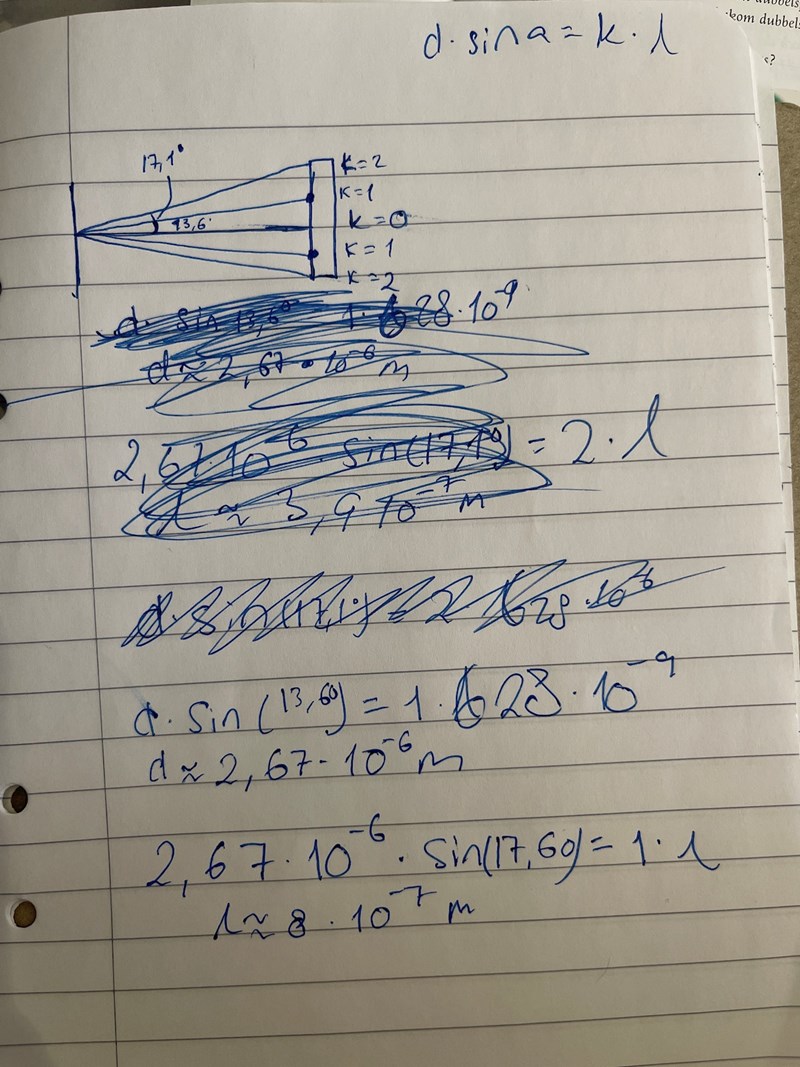 dubbels
kom dubbels
?
d · sin a = k · λ
17,1°
13,6°
k=2
k=1
k=0
k=1
k=2
d · sin 13,6° 1 · 628 · 10⁻⁹
d ≈ 2,67 · 10⁻⁶ m
2,67 · 10⁻⁶ · sin(17,1°) = 2 · λ
λ ≈ 3,9 10⁻⁷ m
d · sin(13,6°) = 1 · 628 · 10⁻⁹
d ≈ 2,67 · 10⁻⁶ m
2,67 · 10⁻⁶ · sin(17,6°) = 1 · λ
λ ≈ 8 · 10⁻⁷ m